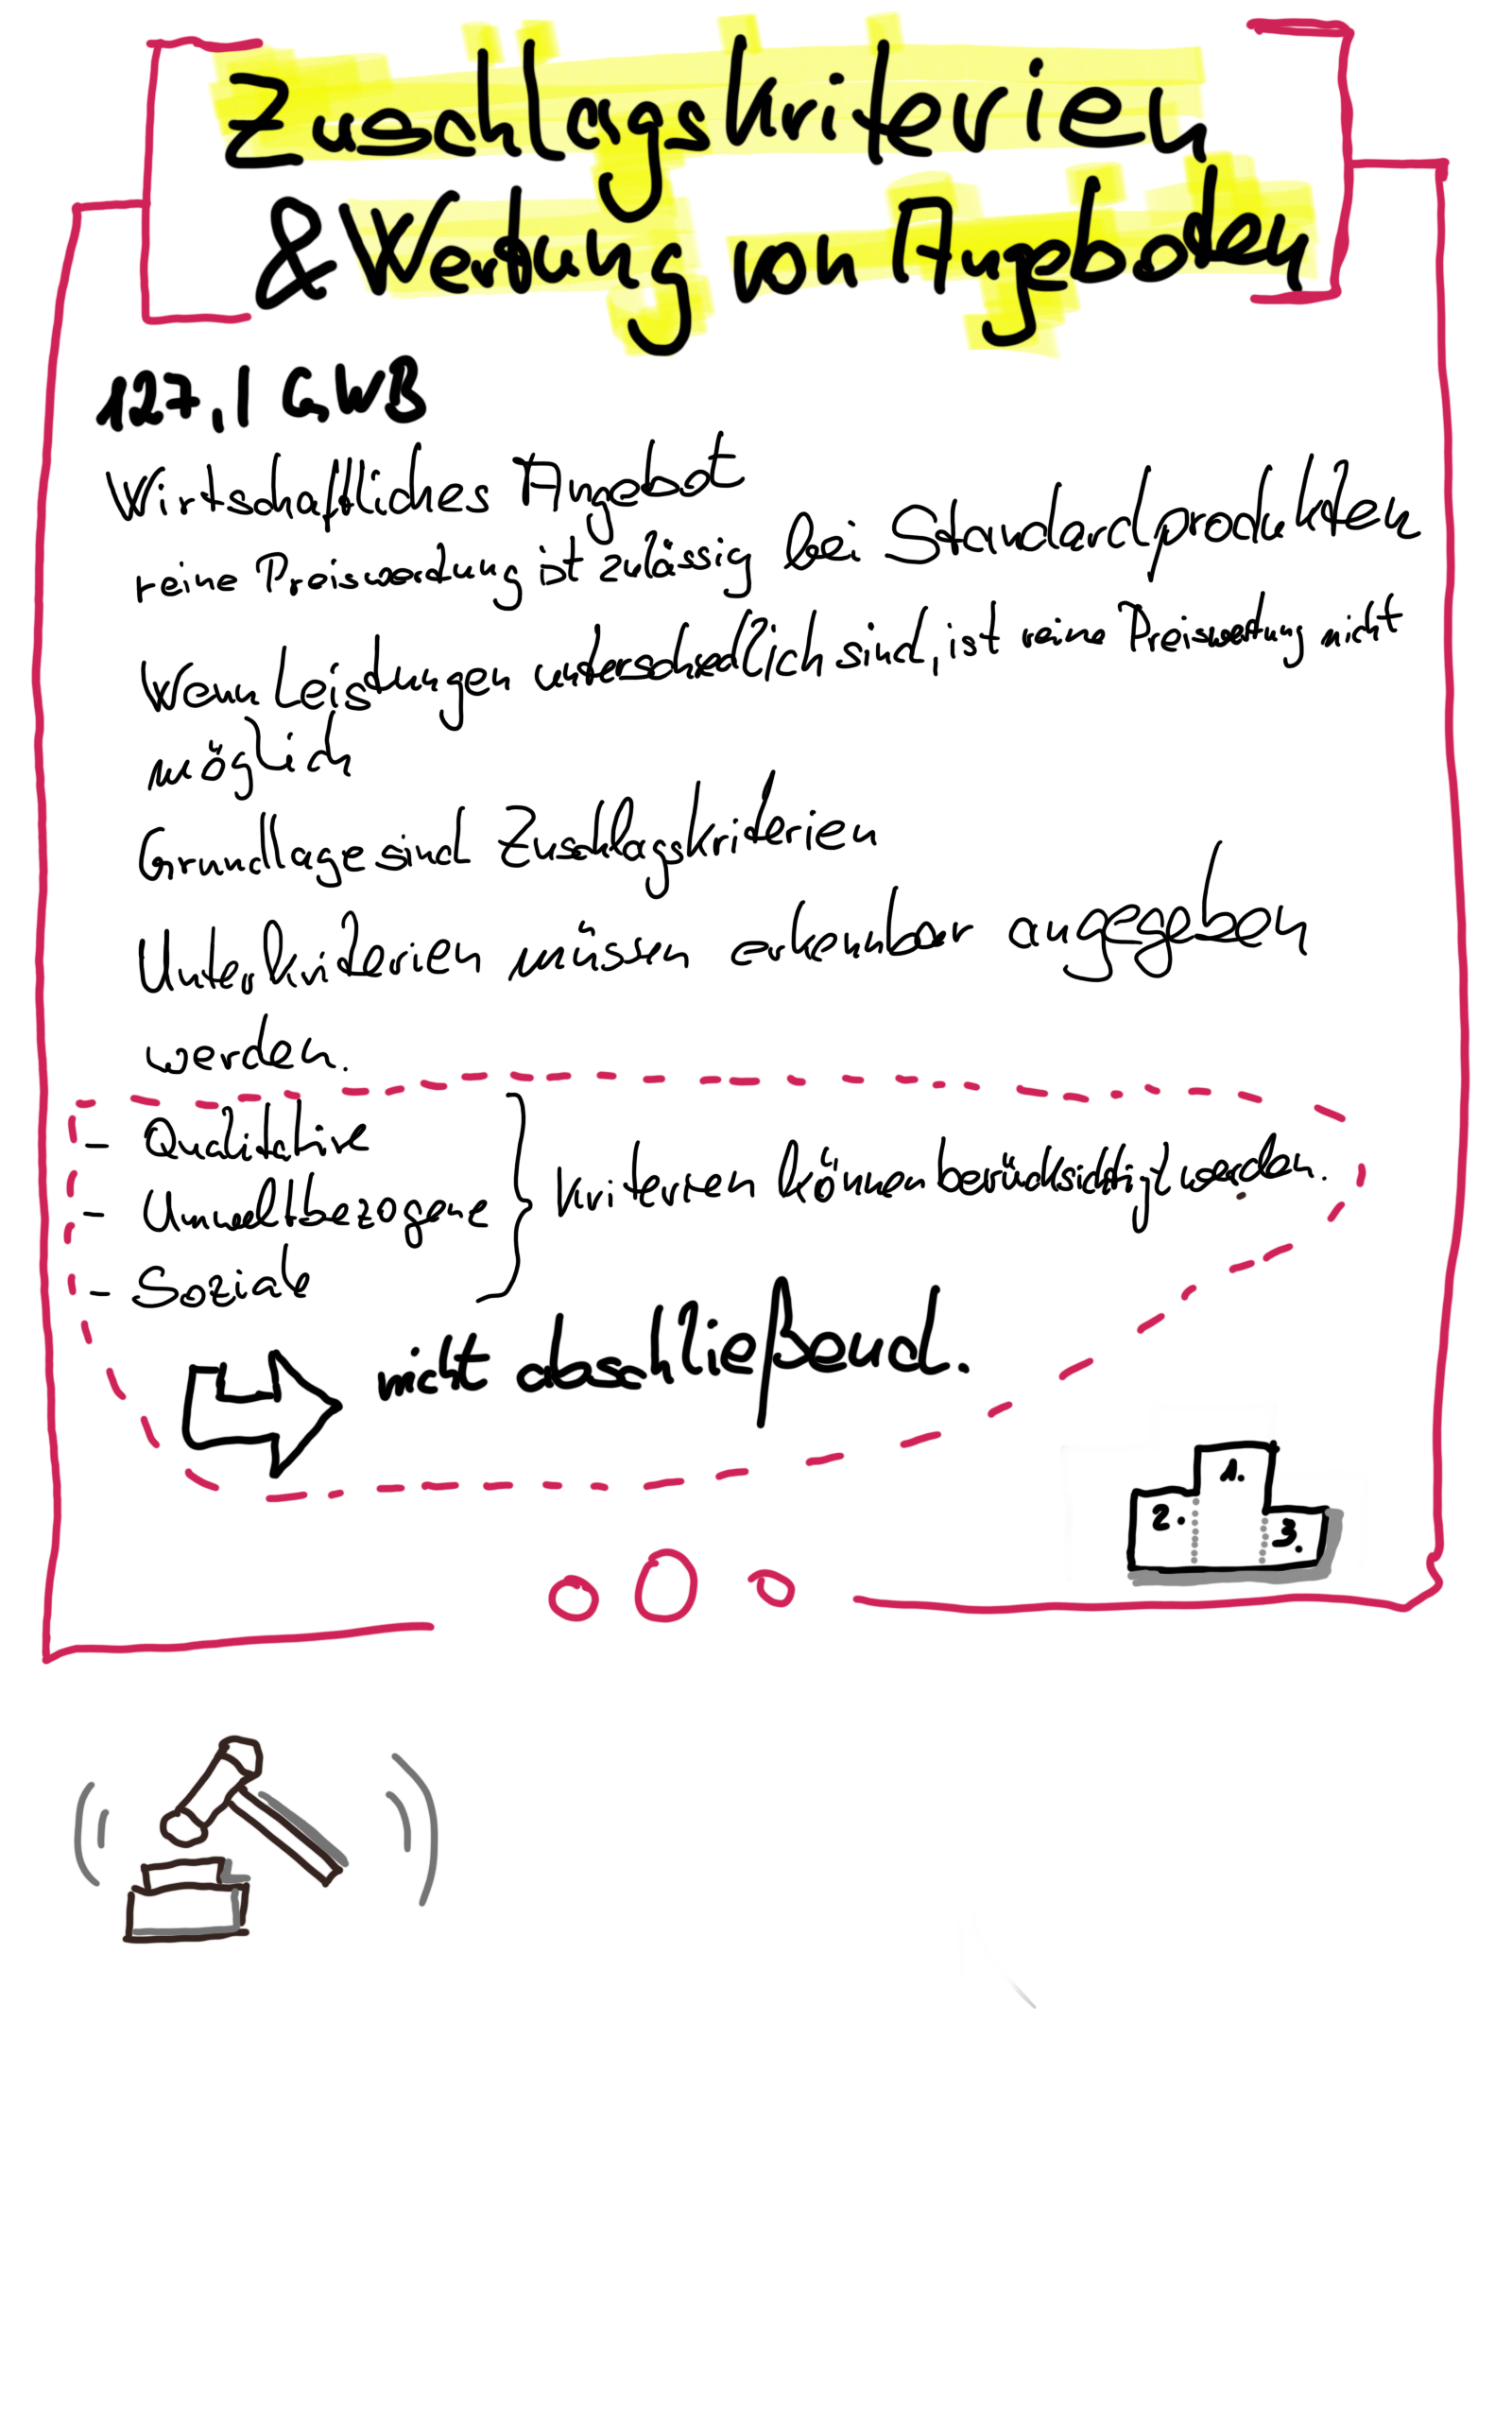 Zuschlagskriterien
& Wertung von Angeboten
127,1 GWB
Wirtschaftliches Angebot
reine Preiswertung ist zulässig bei Standardprodukten
Wenn Leistungen unterschiedlich sind, ist reine Preiswertung nicht
möglich
Grundlage sind Zuschlagskriterien
Unterkriterien müssen erkennbar angegeben
werden.
- Qualitative
- Umweltbezogene
- Soziale
Kriterien können berücksichtigt werden.
nicht abschließend.
1.
2.
3.